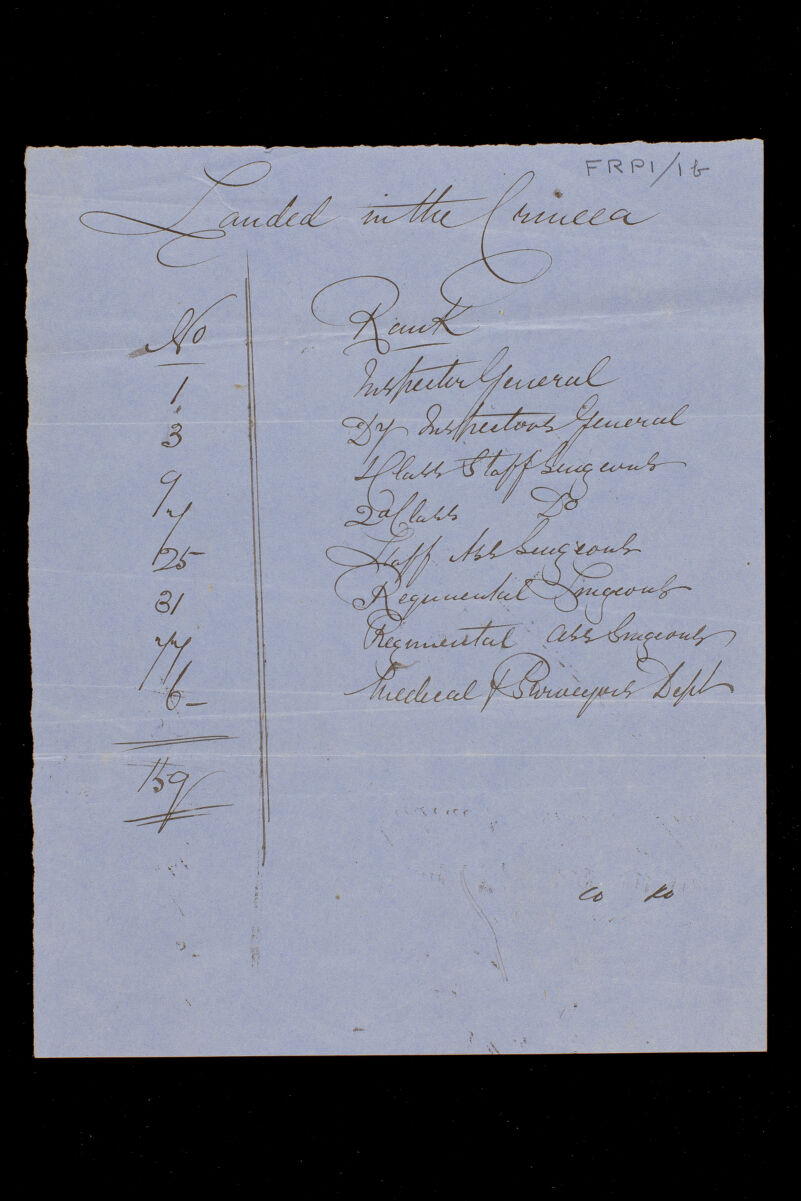 FRP1/1b
Landed in the Crimea
No Rank
1 Inspector General
3 Dy Inspectors General
9 1 Class Staff Surgeons
7 2d Class Do
25 Staff Ass Surgeons
31 Regimental Surgeons
77 Regimental Ass Surgeons
6 Medical & Purveyors Dept
159